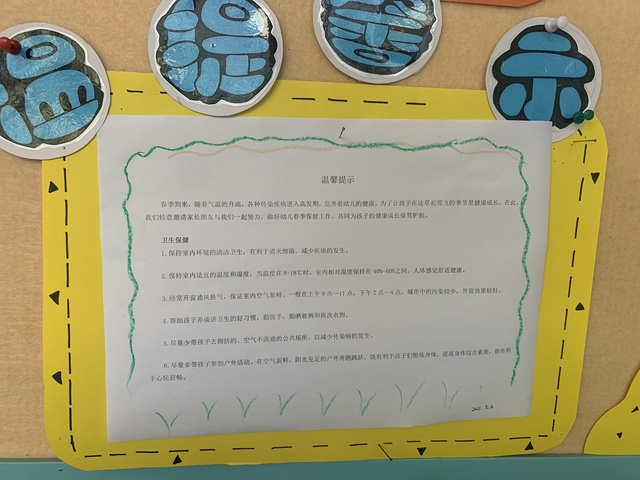 温馨提示
温馨提示
春季到来，随着气温的升高，各种传染疾病进入高发期，危害着幼儿的健康。为了让孩子在这草长莺飞的季节里健康成长，在此，
我们特意邀请家长朋友与我们一起努力，做好幼儿春季保健工作，共同为孩子的健康成长保驾护航。
卫生保健
1.保持室内环境的清洁卫生，有利于消灭细菌，减少疾病的发生。
2.保持室内适宜的温度和湿度，当温度在8-18℃时，室内相对湿度保持在40%-60%之间，人体感觉舒适健康。
3.经常开窗通风换气，保证室内空气新鲜，一般在上午9点—11点，下午2点—4点，城市中的污染较少，开窗效果较好。
4.帮助孩子养成讲卫生的好习惯，勤洗手、勤晒被褥和换洗衣物。
5.尽量少带孩子去拥挤的、空气不流通的公共场所，以减少传染病的发生。
6.尽量多带孩子参加户外活动，在空气新鲜，阳光充足的户外奔跑跳跃，既有利于孩子们锻炼身体，提高身体综合素质，也有利
于心情舒畅。